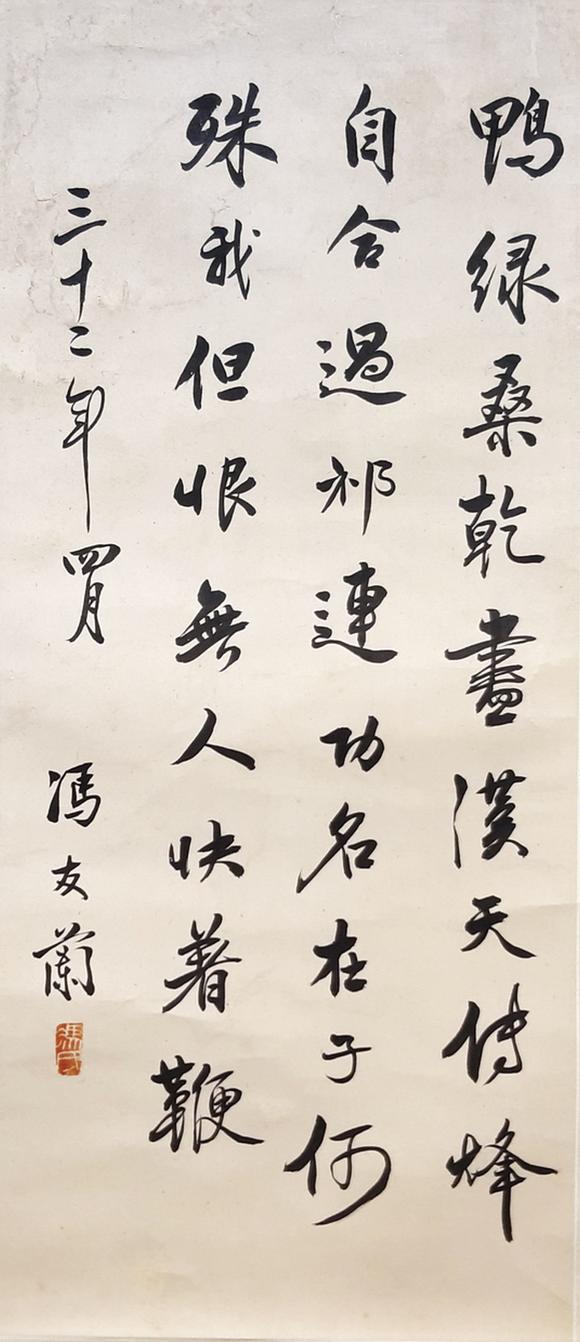 鴨绿桑乾盡漢天傳烽
自合過祁連功名在子何
殊我但恨無人快着鞭
三十二年四月
馮友蘭